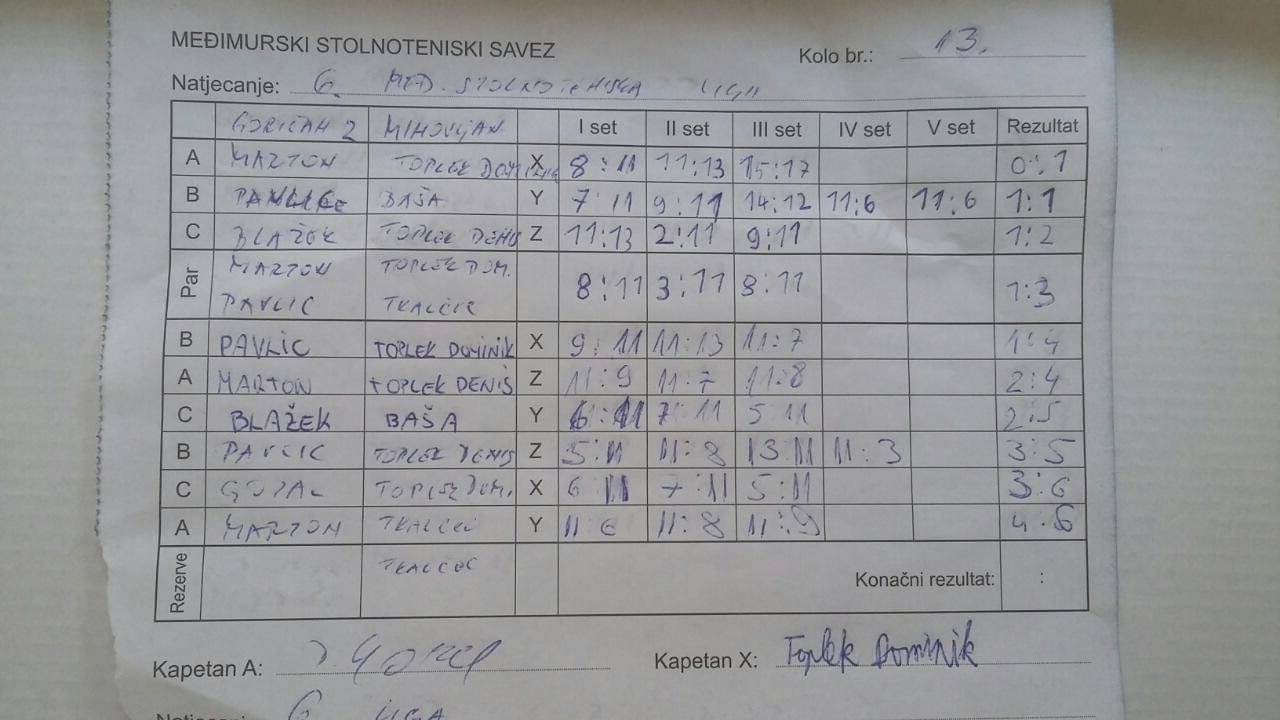 MEĐIMURSKI STOLNOTENISKI SAVEZ Kolo br.: 13.
Natjecanje: 6. MEĐ. STOLNOTENISKA LIGA
GORIČAN 2 MIHOVLJAN I set II set III set IV set V set Rezultat
A MARTON TOPLEK DOMINIK X 8:11 11:13 15:17 0:1
B PAVLIC BAŠA Y 7:11 9:11 14:12 11:6 11:6 1:1
C BLAŽEK TOPLEK DENIS Z 11:13 2:11 9:11 1:2
Par MARTON TOPLEK DOM. 8:11 3:11 8:11 1:3
PAVLIC TKALČEC
B PAVLIC TOPLEK DOMINIK X 9:11 11:13 11:7 1:4
A MARTON TOPLEK DENIS Z 11:9 11:7 11:8 2:4
C BLAŽEK BAŠA Y 6:11 7:11 5 11 2:5
B PAVLIC TOPLEK DENIS Z 5:11 11:8 13 11 11:3 3:5
C TOPLEK DOM. X 6 11 7:11 5:11 3:6
A MARTON TKALČEC Y 11 6 11:8 11:9 4:6
Rezerve TKALČEC Konačni rezultat: :
Kapetan A: Kapetan X: Toplek Dominik
6 LIGA